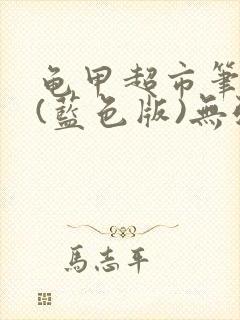 龟甲超市筆
(藍色版)無
馬志平